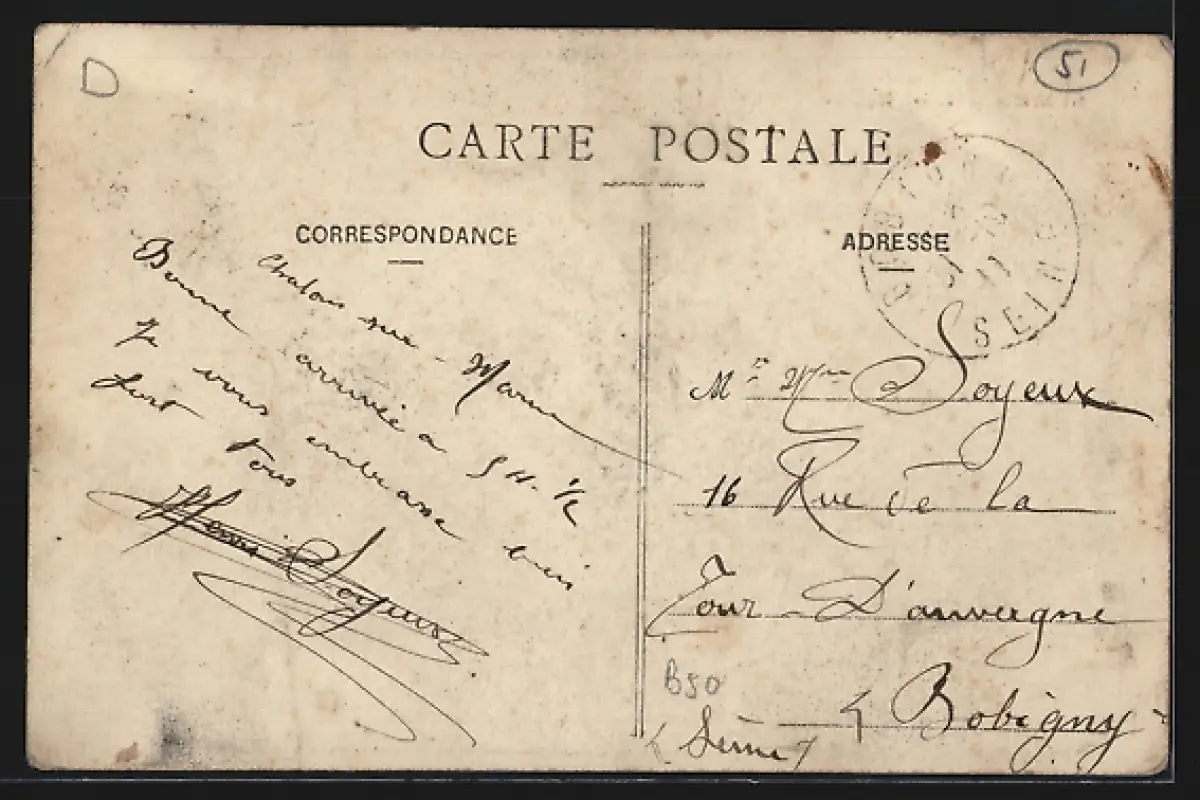 D
51
CARTE POSTALE
CORRESPONDANCE
ADRESSE
SEINE
Chalons sur - Marne
Bonne arrivée a 5 H. 1/2
Je vous embrasse bien
fort tous
Soyeux
Mr Mme Soyeux
16 Rue de la
Tour D'auvergne
Bobigny
(Seine)
B50